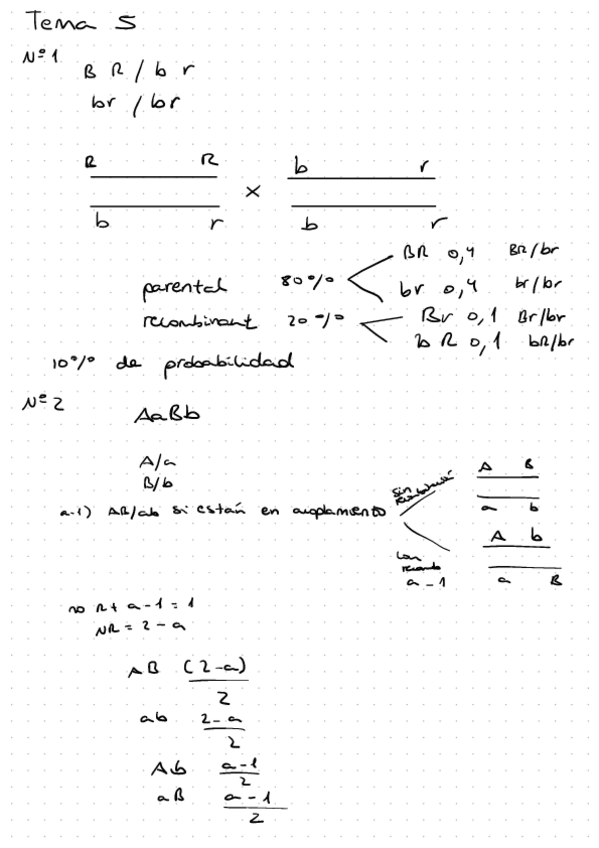 Tema 5
Nº 1
B R / b r
br / br
R R b r
x
b r b r
parental 80% BR 0,4 BR/br
br 0,4 br/br
recombinant 20% Br 0,1 Br/br
bR 0,1 bR/br
10% de probabilidad
Nº 2
AaBb
A/a
B/b
a-1) AB/ab si están en acoplamiento
sin A B
a b
con A b
a - 1 a B
no R + a - 1 = 1
NR = 2 - a
AB (2-a)
2
ab 2-a
2
Ab a-1
2
aB a-1
2